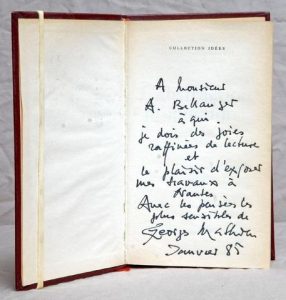 COLLECTION IDÉES
A Monsieur
A. Bellanger
à qui
je dois des joies
raffinées de lecture
et
le plaisir d'exposer
mes travaux à
Nantes.
Avec les pensées les
plus sensibles de
Georges Mathieu
Janvier 85